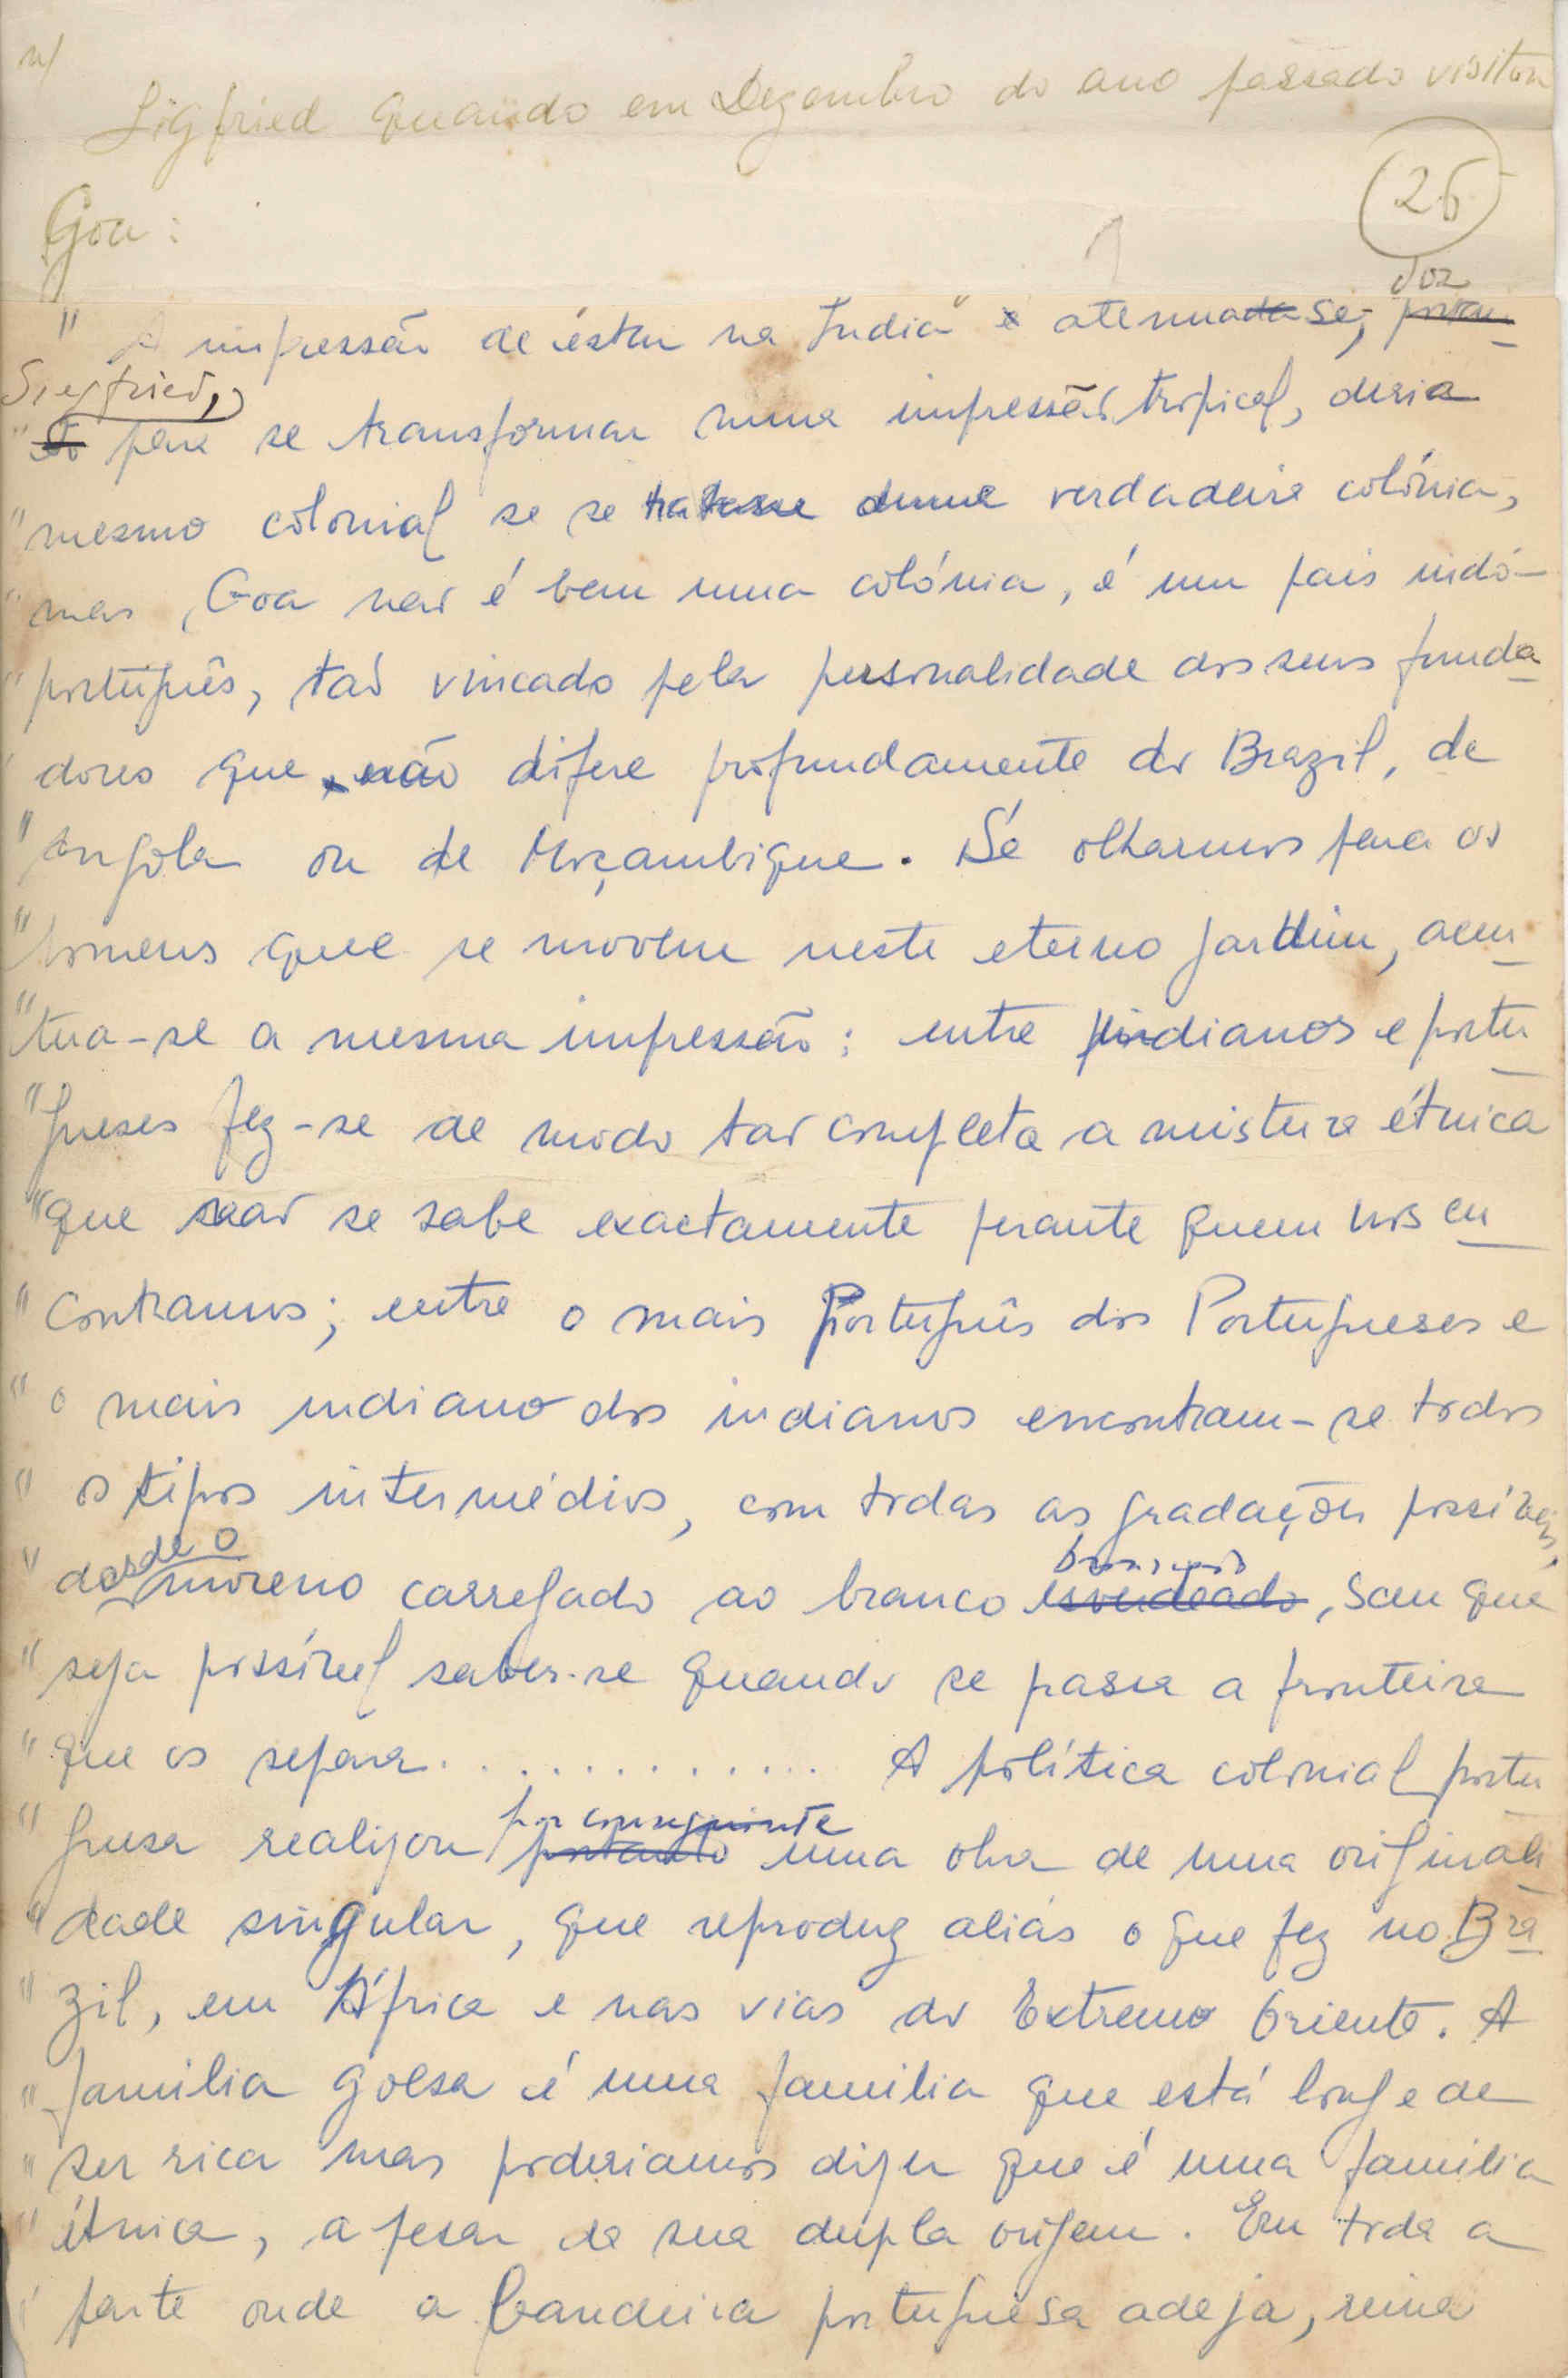 Sigfried quando em Dezembro do ano passado visitou
26
Goa:
diz
" A impressão de estar na India" atenuada se,
Siegfried,
" para se transformar numa impressão tropical, diria
" mesmo colonial se se tratasse duma verdadeira colónia,
" mas, Goa não é bem uma colónia, é um país indó-
" português, tão vincado pela personalidade dos seus funda
dores que não difere profundamente do Brazil, de
" Angola ou de Moçambique. Se olharmos para os
" homens que se movem neste eterno jardim, acen
" tua-se a mesma impressão: entre indianos e portu
" gueses fez-se de modo tão completa a mistura étnica
" que não se sabe exactamente perante quem nos en
" contramos; entre o mais Português dos Portugueses e
" o mais indiano dos indianos encontram-se todos
" os tipos intermédios, com todas as gradações possíveis,
desde o
" moreno carregado ao branco esverdeado, sem que
" seja possível saber-se quando se passa a fronteira
" que os separa. . . . . . . . . . . . . A política colonial portu
por conseguinte
" guesa realizou portanto uma obra de uma originali
" dade singular, que reproduz aliás o que fez no Bra
" zil, em África e nas vias do Extremo Oriente. A
" familia goesa é uma familia que está longe de
" ser rica mas poderiamos dizer que é uma familia
" étnica, a pesar da sua dupla origem. Em toda a
" parte onde a bandeira portuguesa adeja, reina